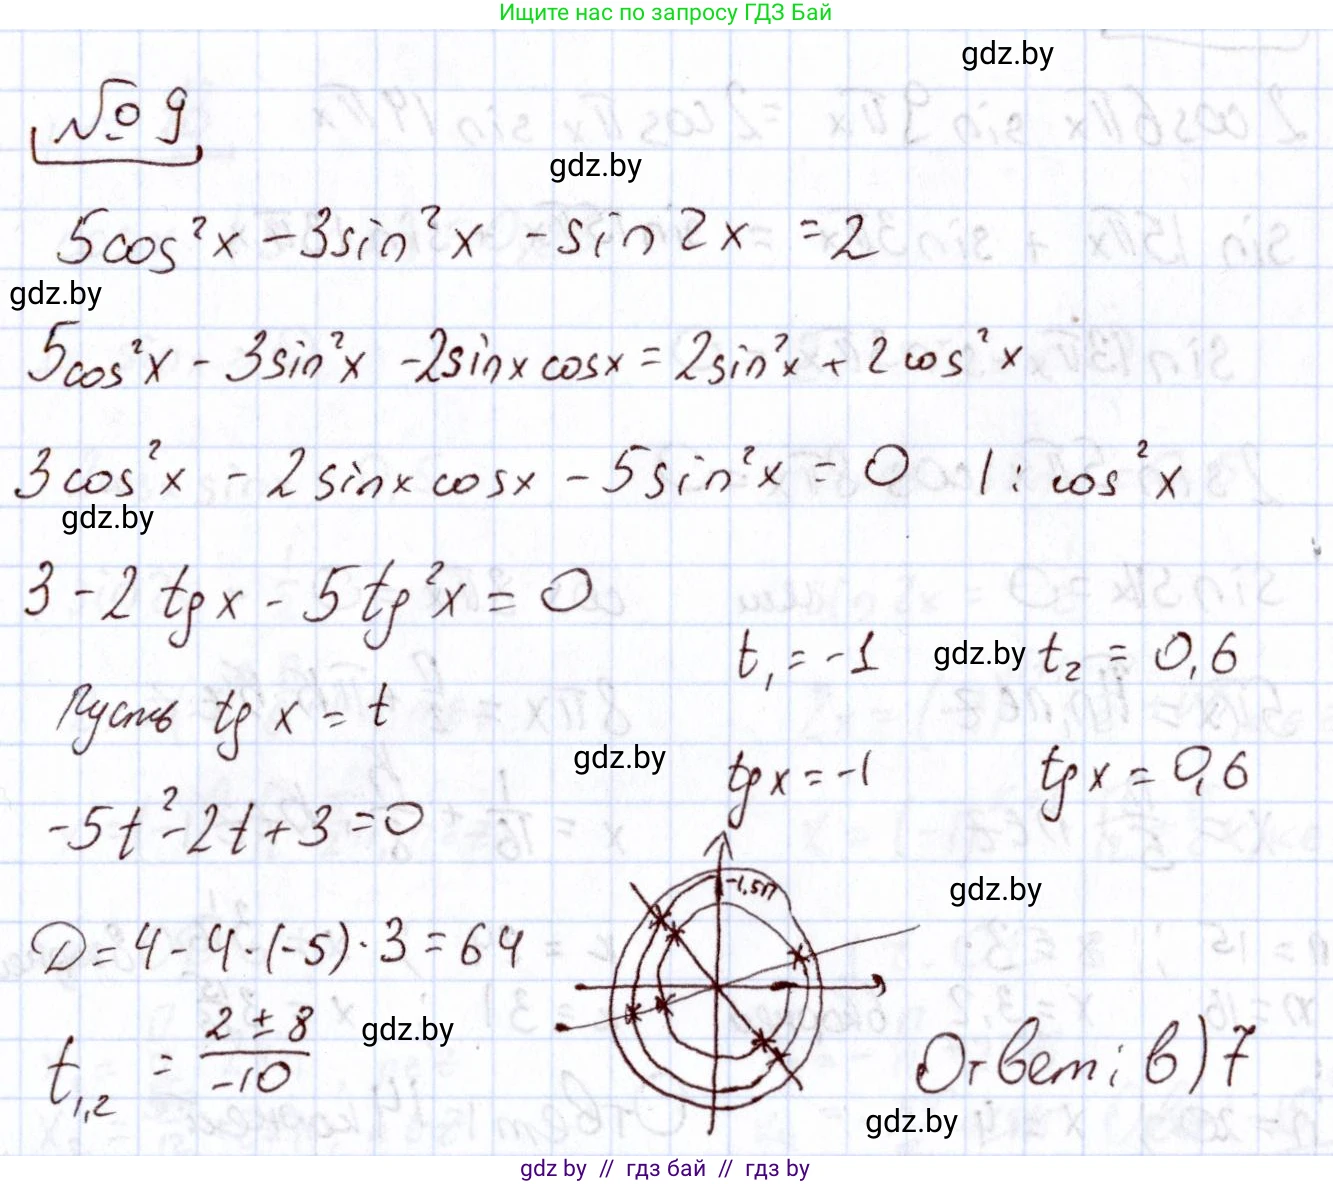 Ищите нас по запросу ГДЗ Бай
gdz.by
№ 9
gdz.by
5cos²x - 3sin²x - sin 2x = 2
gdz.by
5cos²x - 3sin²x - 2sinx cosx = 2sin²x + 2cos²x
3cos²x - 2sinx cosx - 5sin²x = 0 | : cos²x
gdz.by
3 - 2tgx - 5tg²x = 0
t₁ = -1 gdz.by t₂ = 0,6
Пусть tg x = t
gdz.by tgx = -1 tgx = 0,6
-5t² - 2t + 3 = 0
-1,5π
gdz.by
D = 4 - 4·(-5)·3 = 64
t₁,₂ = (2 ± 8)/(-10)
gdz.by
Ответ: в) 7
gdz.by
gdz by // гдз бай // гдз by